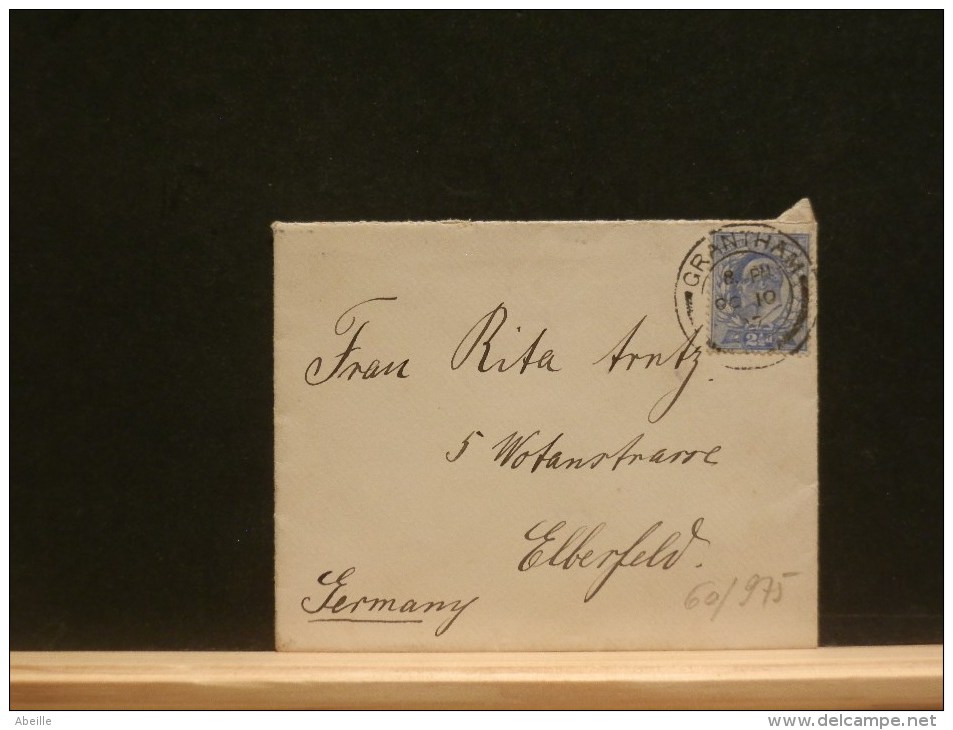 GRANTHAM
8 PM
OC 10
07
2½d
Frau Rita Arntz.
5 Wotanstrasse
Elberfeld.
Germany
60/975
Abeille
www.delcampe.net